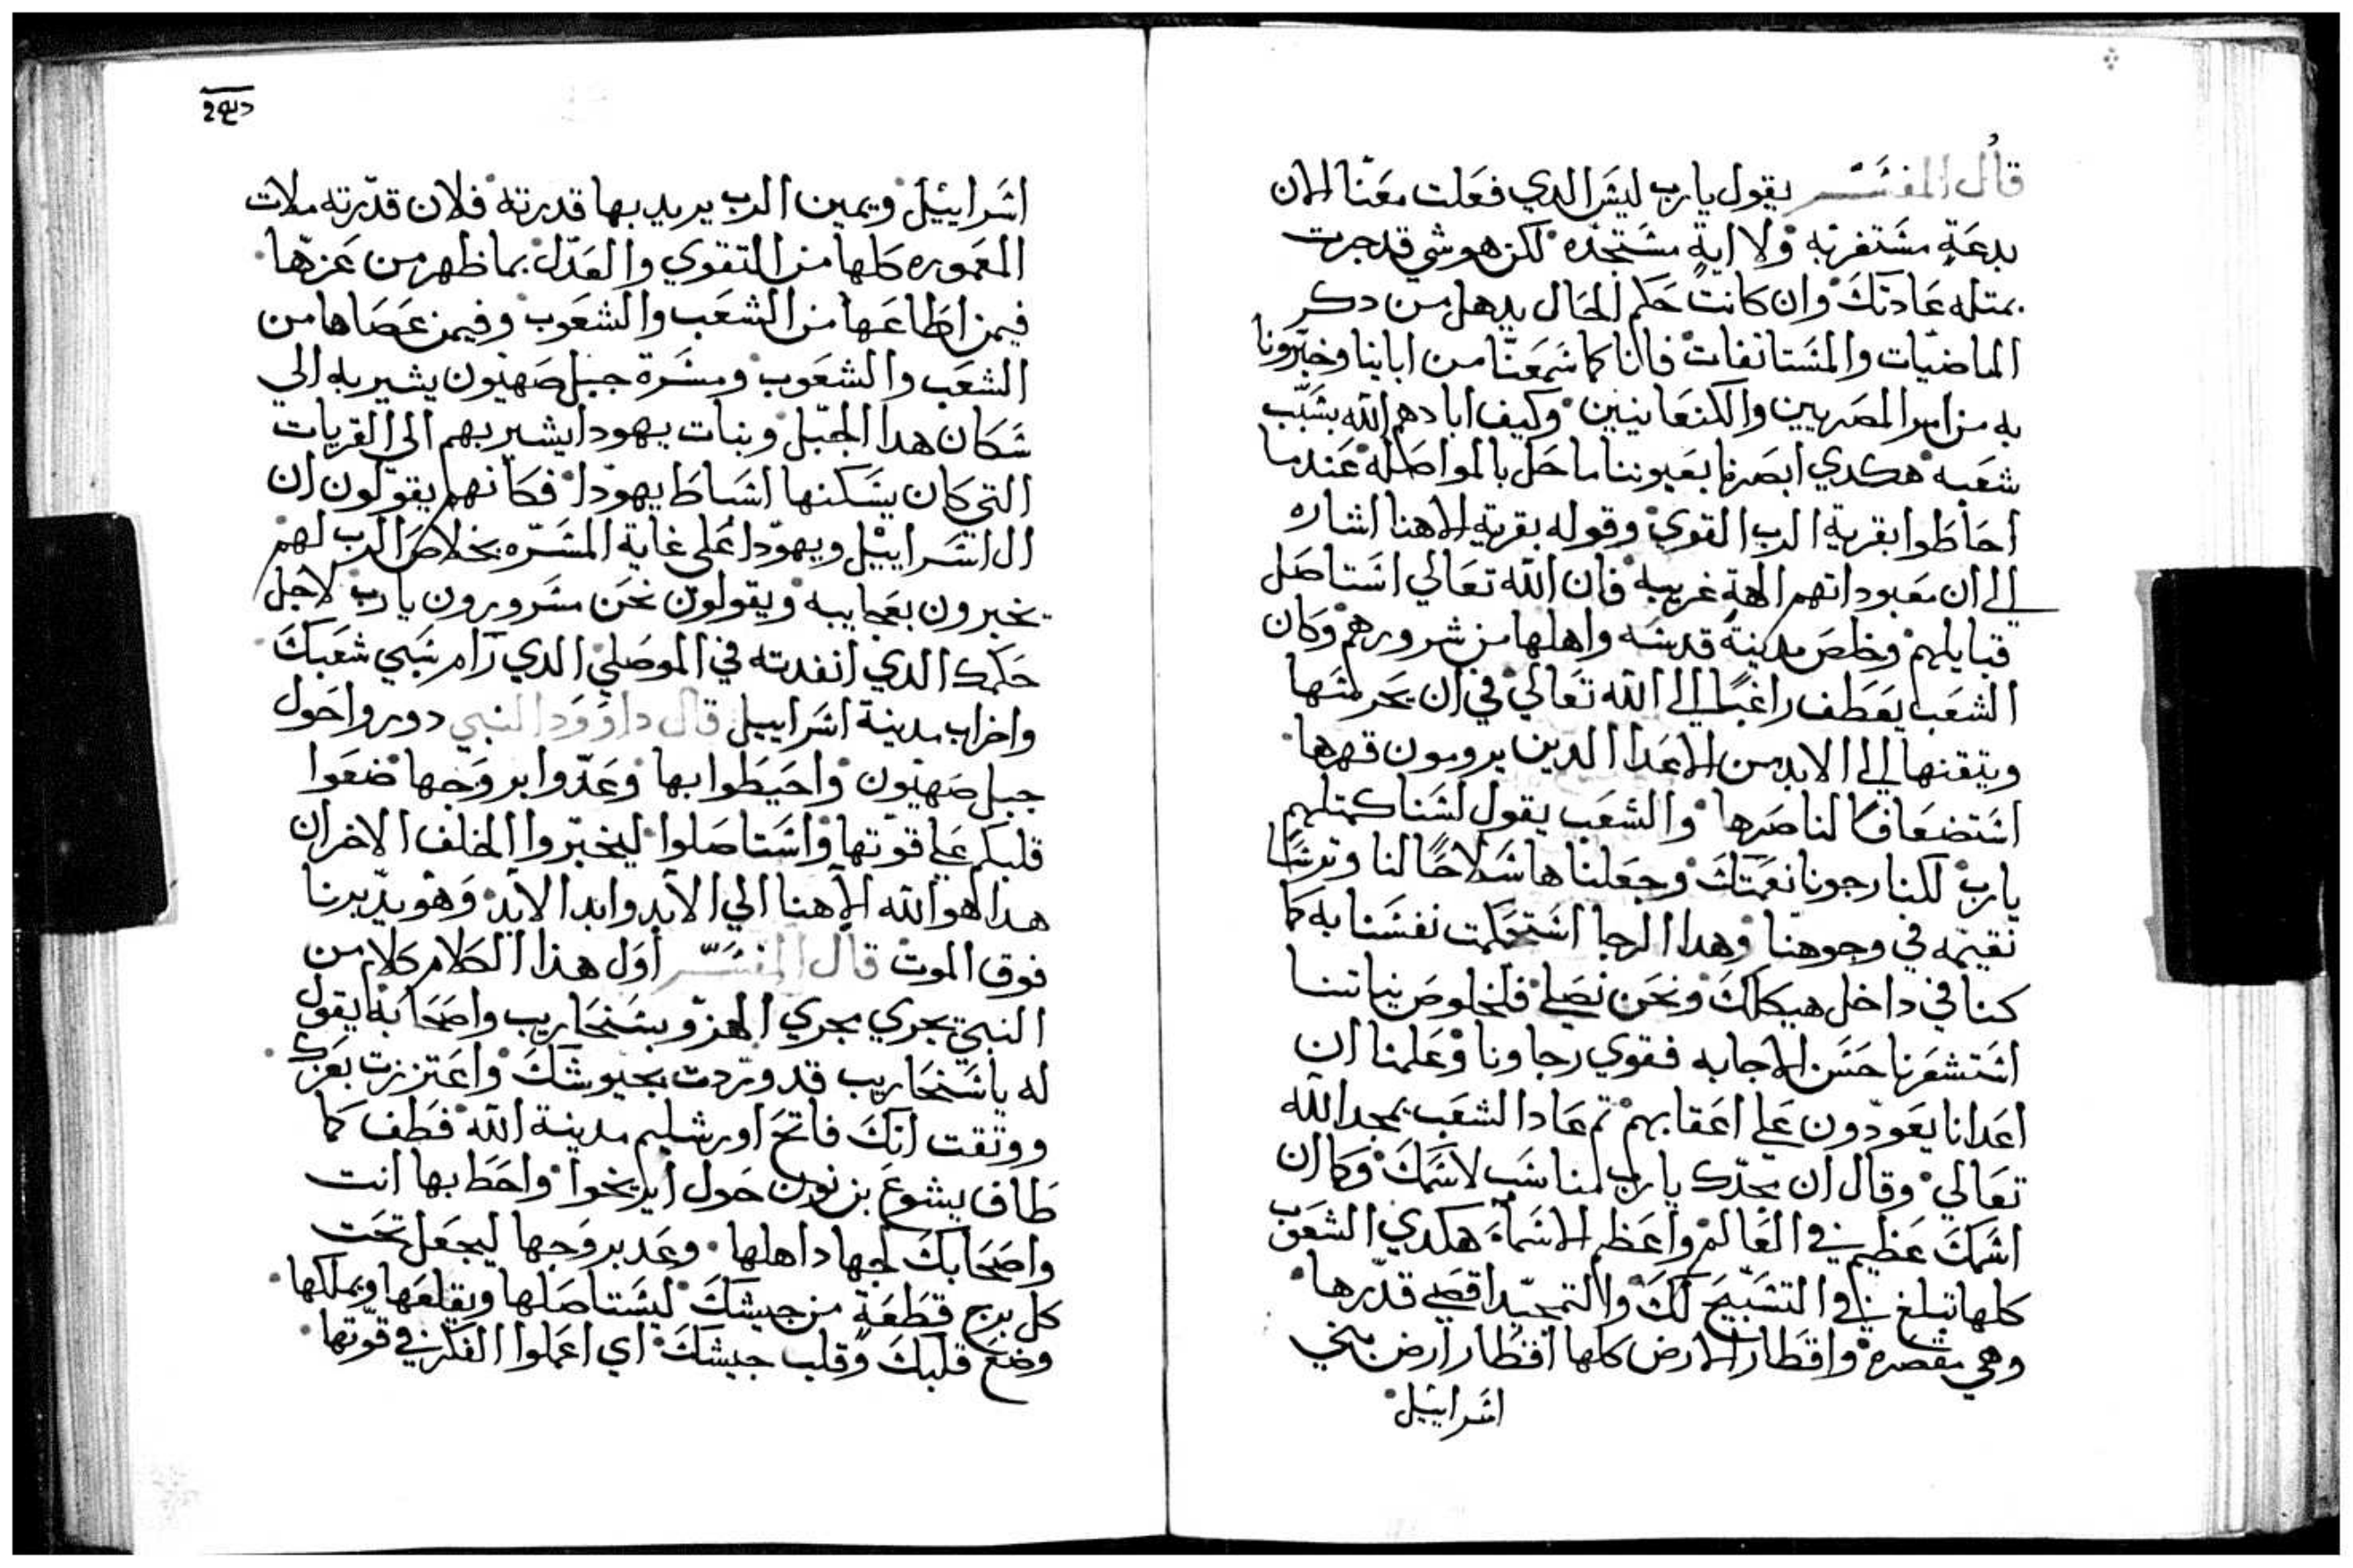 قال المفسر يقول يارب ليس الدي فعلت معنا الان
بدعة مستغربه ولا اية مستجده لكن هو شي قد جرت
بمتله عادتك وان كانت حكم الحال يدهل من دكر
الماضيات والمستانفات فانا كما سمعنا من اباينا وخبرونا
به من امر المصريين والكنعانيين وكيف ابادهم الله بسبب
شعبه هكدي ابصرنا بعيوننا ما حل بالمواصله عندما
احاطوا بقرية الرب القوي وقوله بقرية الاهنا اشاره
الي ان معبوداتهم الهة غريبه فان الله تعالي استاصل
قبايلهم وخلص مدينة قدسه واهلها من شرورهم وكان
الشعب يعطف راغبا الي الله تعالي في ان يحرسها
ويتقنها الي الابد من الاعدا الدين يرومون قهرها
استضعافا لناصرها والشعب يقول لسنا كمتلهم
يارب لكنا رجونا نعمتك وجعلناها سلاحا لنا وترسا
نقيمه في وجوهنا وهدا الرجا استحكمت نفسنا به كما
كنا في داخل هيكلك ونحن نصلي فلخلوص نياتنا
استشعرنا حسن الاجابه فقوي رجاونا وعلمنا ان
اعدانا يعودون علي اعقابهم تم عاد الشعب يمجد الله
تعالي وقال ان مجدك يارب مناسب لاسمك وكما ان
اسمك عظيم في العالم واعظم الاسماء هكدي الشعوب
كلها تبلغ في التسبيح لك والتمجيد اقصي قدرها
وهي مقصرة واقطار الارض كلها اقطار ارض بني
اسراييل
اسراييل ويمين الرب يريد بها قدرته فلان قدرته ملات
المعموره كلها من التقوي والعدل بما ظهر من عزها
فيمن اطاعها من الشعب والشعوب وفيمن عصاها من
الشعب والشعوب ومسرة جبل صهيون يشير به الي
سكان هدا الجبل وبنات يهودا يشير بهم الي القريات
التي كان يسكنها اسباط يهودا فكانهم يقولون ان
ال اسراييل ويهودا علي غاية المسره بخلاص الرب لهم
يخبرون بعجايبه ويقولون نحن مسرورون يارب لاجل
حكمك الدي انفدته في الموصلي الدي رام سبي شعبك
واخراب مدينة اسراييل قال داوود النبي دوروا حول
جبل صهيون واحيطوا بها وعدوا بروجها ضعوا
قلبكم علي قوتها واستاصلوا ليخبروا الخلف الاخر ان
هدا هو الله الاهنا الي الابد وابد الابد وهو يدبرنا
فوق الموت قال المفسر اول هذا الكلام كلام من
النبي يجري مجري الهزو بسنحاريب واصحابه يقول
له ياسنحاريب قد وردت بجيوشك واعتززت بعزك
ووتقت انك فاتح اورشليم مدينة الله فطف كما
طاف يشوع بن نون حول ايريحوا واحط بها انت
واصحابك لجهاد اهلها وعد بروجها ليجعل تحت
كل برج قطعة من جيشك ليستاصلها ويقلعها ويملكها
وضع قلبك وقلب جيشك اي اعملوا الفكر في قوتها